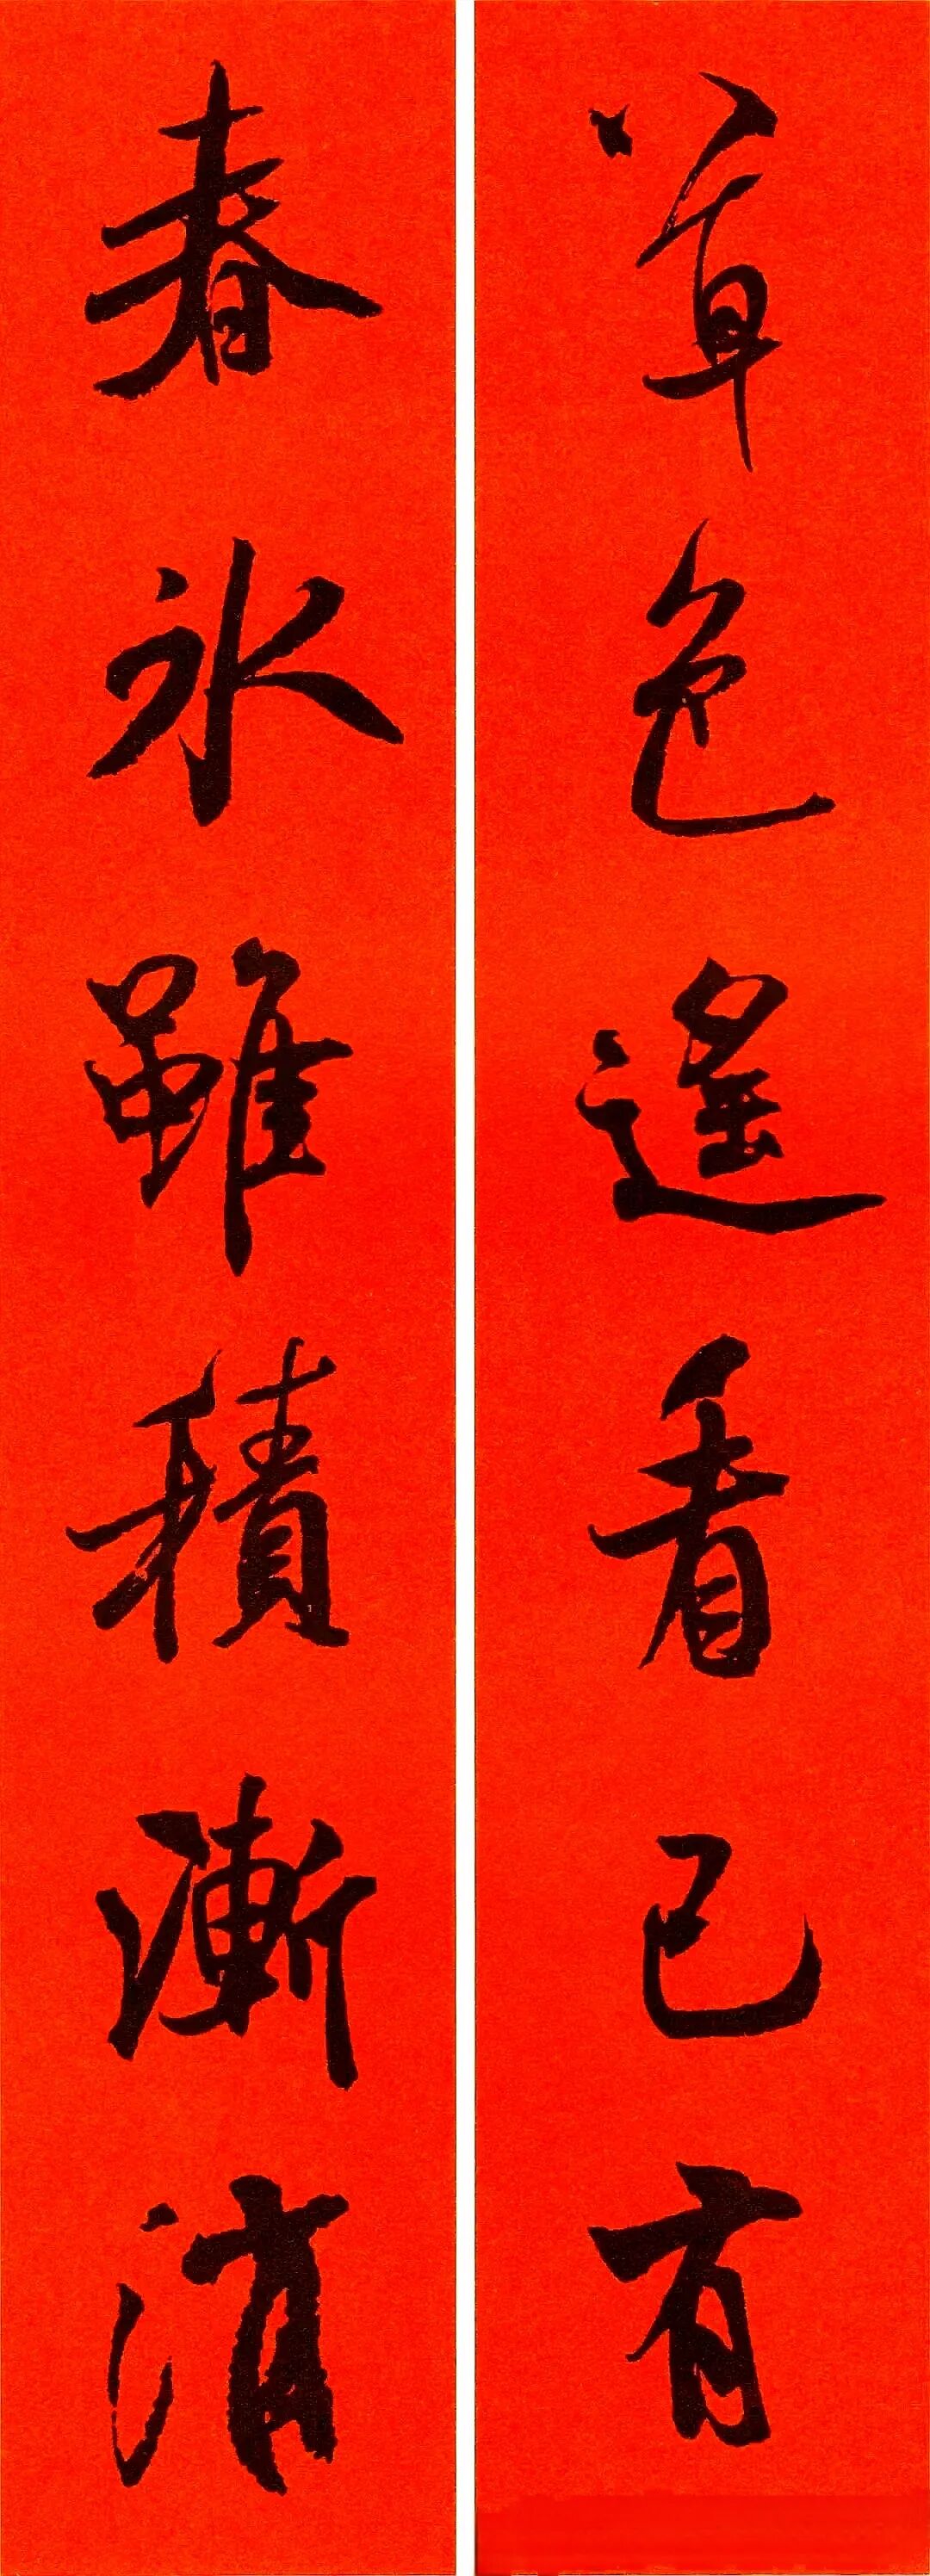 草色遥看已有
春冰雖積漸消